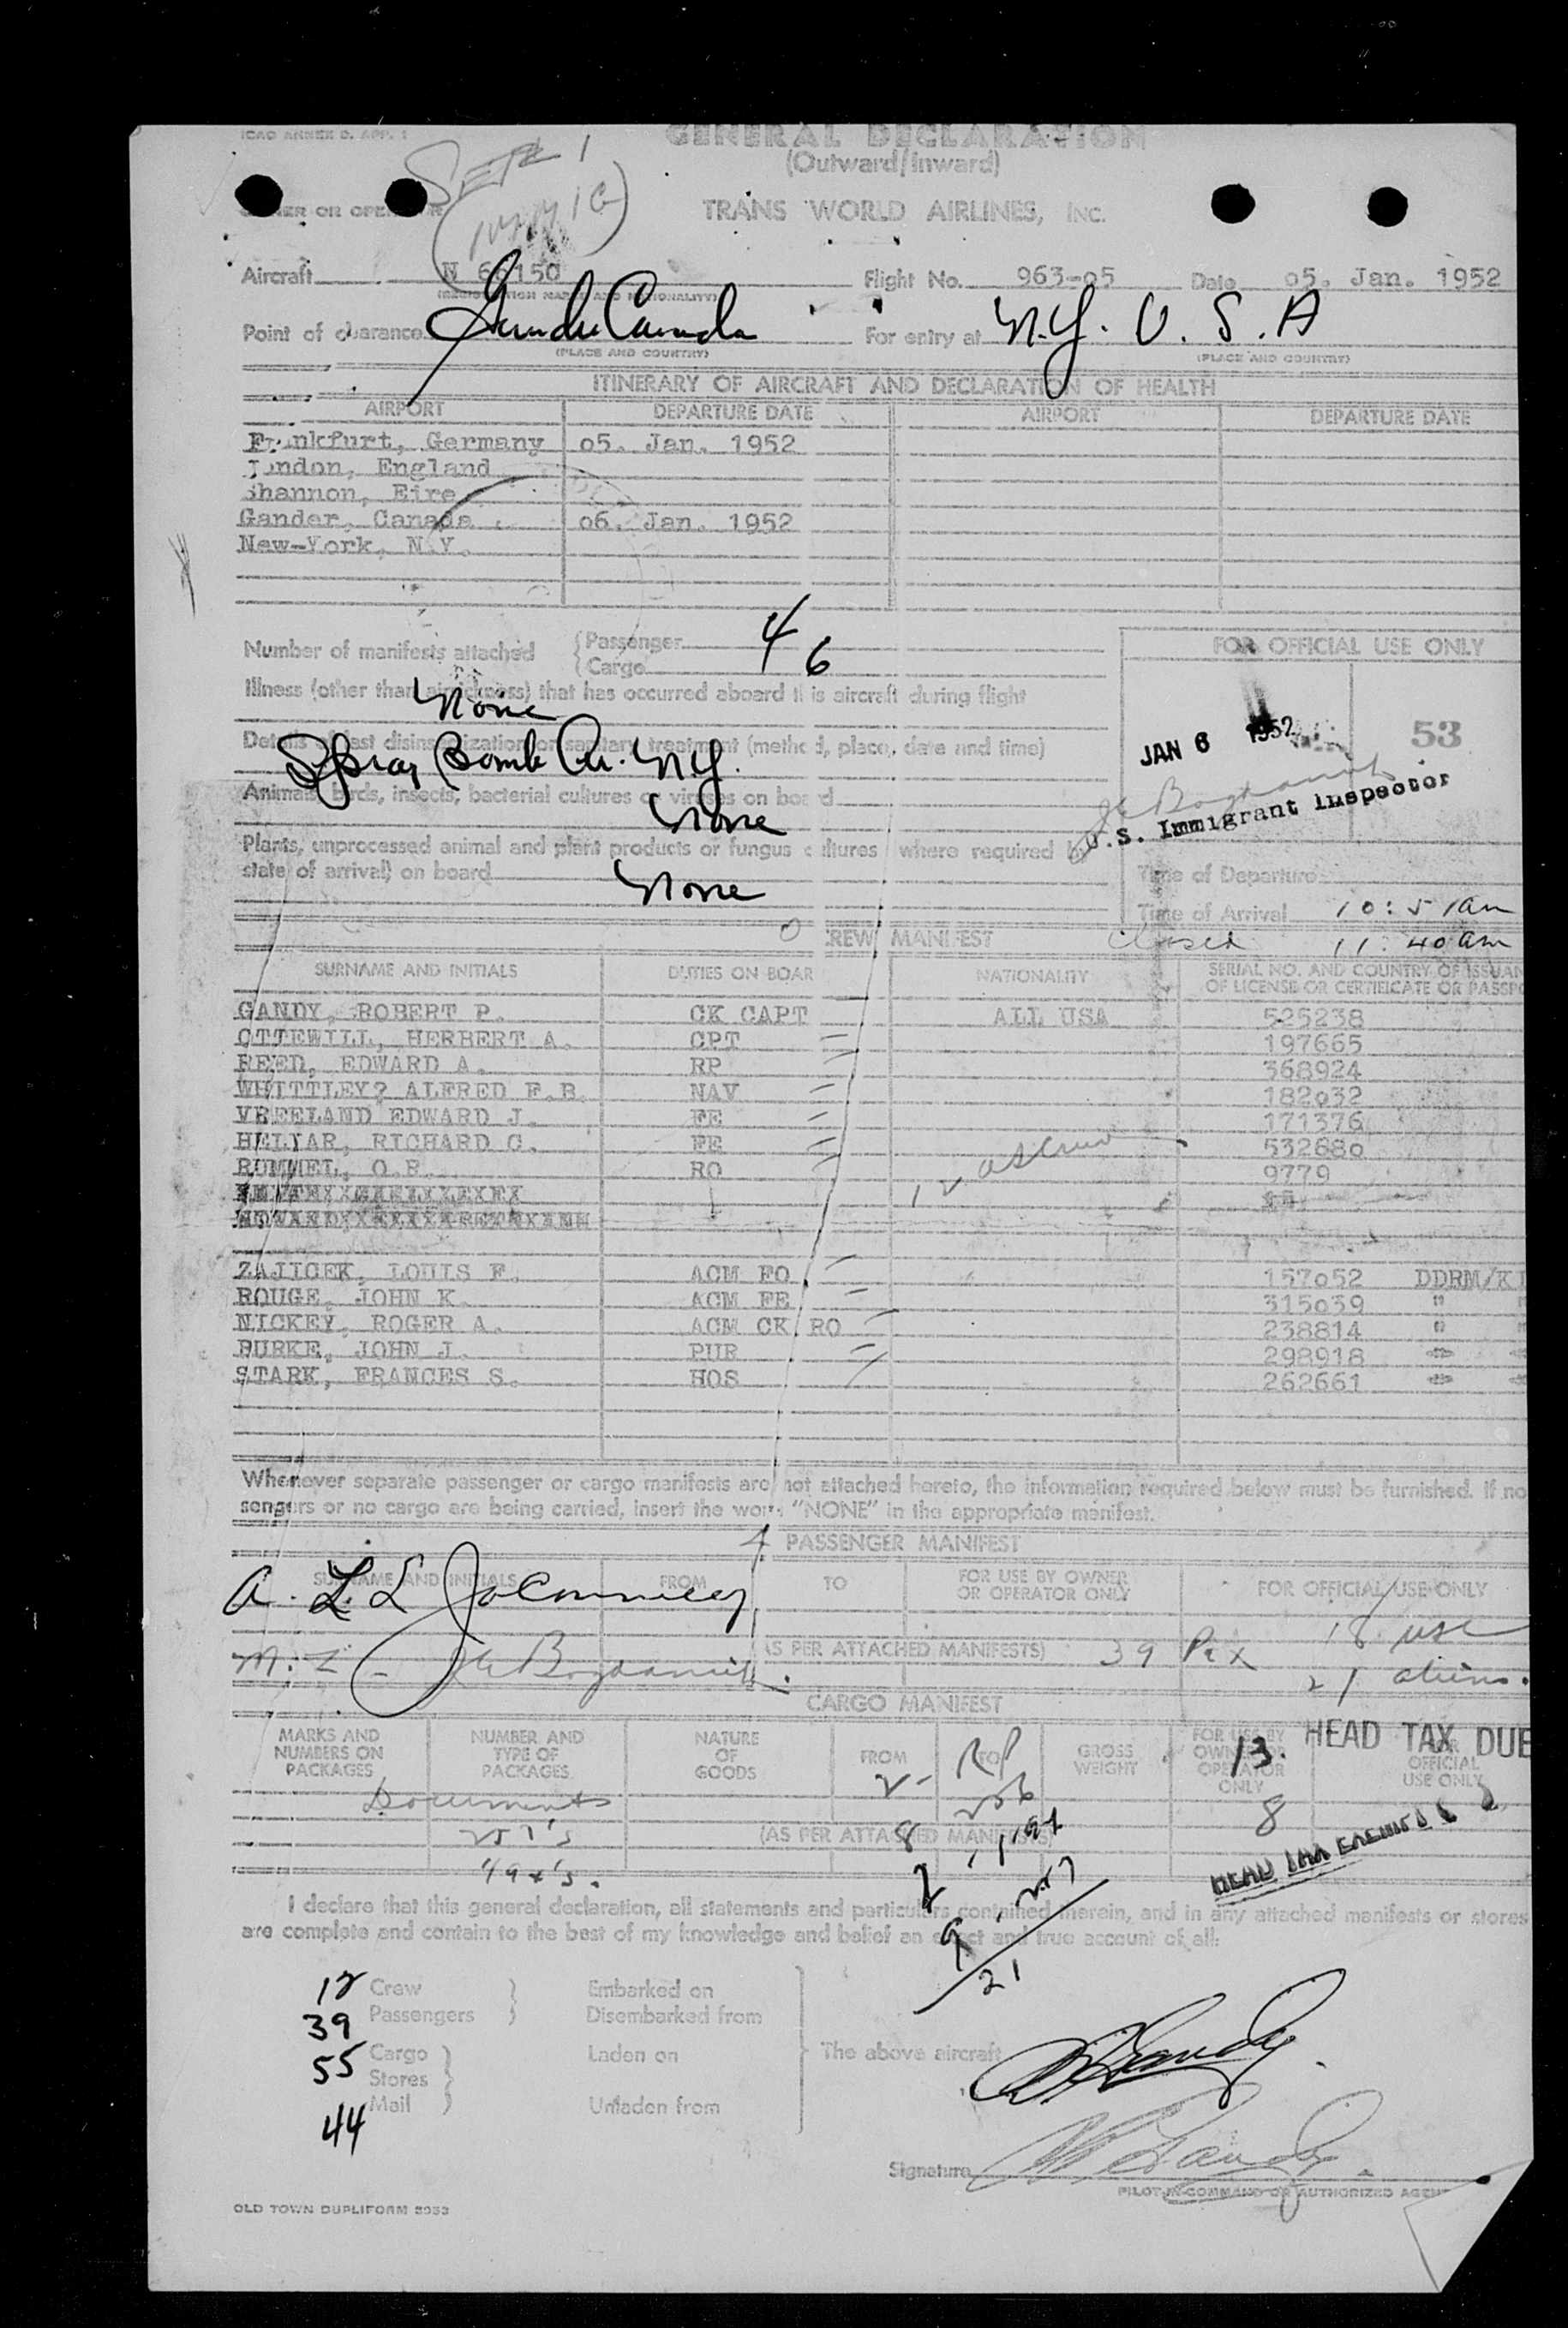 ICAO ANNEX 9, APP. 1
GENERAL DECLARATION
(Outward/Inward)
OWNER OR OPERATOR
TRANS WORLD AIRLINES, Inc.
Aircraft N 6 150 Flight No. 963-o5 Date o5. Jan. 1952
Point of clearance Gander Canada For entry at N.Y. U.S.A
(PLACE AND COUNTRY) (PLACE AND COUNTRY)
ITINERARY OF AIRCRAFT AND DECLARATION OF HEALTH
AIRPORT DEPARTURE DATE AIRPORT DEPARTURE DATE
Frankfurt, Germany o5. Jan. 1952
London, England
Shannon, Eire
Gander, Canada o6. Jan. 1952
New-York, N.Y.
Number of manifests attached Passenger 4
Cargo 6
Illness (other than airsickness) that has occurred aboard this aircraft during flight
None
Details of last disinsectization or sanitary treatment (method, place, date and time)
Spray Bomb Arr. NY.
Animals, birds, insects, bacterial cultures or viruses on board
None
Plants, unprocessed animal and plant products or fungus cultures (where required by
state of arrival) on board None
FOR OFFICIAL USE ONLY
53
JAN 6 1952
U.S. Immigrant Inspector
Time of Departure
Time of Arrival 10:51am
Closed 11:40am
CREW MANIFEST
SURNAME AND INITIALS DUTIES ON BOAR NATIONALITY SERIAL NO. AND COUNTRY OF ISSUAN
OF LICENSE OR CERTIFICATE OR PASSPO
GANDY, ROBERT P. CK CAPT ALL USA 525238
OTTEWILL, HERBERT A. CPT 197665
REED, EDWARD A. RP 368924
WHITTLEY? ALFRED F.B. NAV 182o32
VREELAND EDWARD J. FE 171376
HELIAR, RICHARD C. FE 53268o
ROMMEL, O.E. RO 9779
ZAJICEK, LOUIS F. ACM FO 157o52 DDRM/KI
ROUGE, JOHN K. ACM FE 315o39 " "
NICKEY, ROGER A. ACM CK RO 238814 " "
BURKE, JOHN J. PUR 298918 " "
STARK, FRANCES S. HOS 262661 " "
Whenever separate passenger or cargo manifests are not attached hereto, the information required below must be furnished. If no
sengers or no cargo are being carried, insert the word "NONE" in the appropriate manifest.
PASSENGER MANIFEST
SURNAME AND INITIALS FROM TO FOR USE BY OWNER
OR OPERATOR ONLY FOR OFFICIAL USE ONLY
(AS PER ATTACHED MANIFESTS) 39 Pax 18 usc
21 aliens.
CARGO MANIFEST
MARKS AND
NUMBERS ON
PACKAGES NUMBER AND
TYPE OF
PACKAGES NATURE
OF
GOODS FROM TO GROSS
WEIGHT FOR USE BY
OWNER OR
OPERATOR
ONLY FOR
OFFICIAL
USE ONLY
13. HEAD TAX DUE
Documents 8
(AS PER ATTACHED MANIFESTS)
HEAD TAX EXEMPTED
21
I declare that this general declaration, all statements and particulars contained therein, and in any attached manifests or stores
are complete and contain to the best of my knowledge and belief an exact and true account of all:
12 Crew Embarked on
39 Passengers Disembarked from
55 Cargo Laden on The above aircraft
Stores
44 Mail Unladen from
Signature
PILOT IN COMMAND OR AUTHORIZED AGENT
OLD TOWN DUPLIFORM 5053